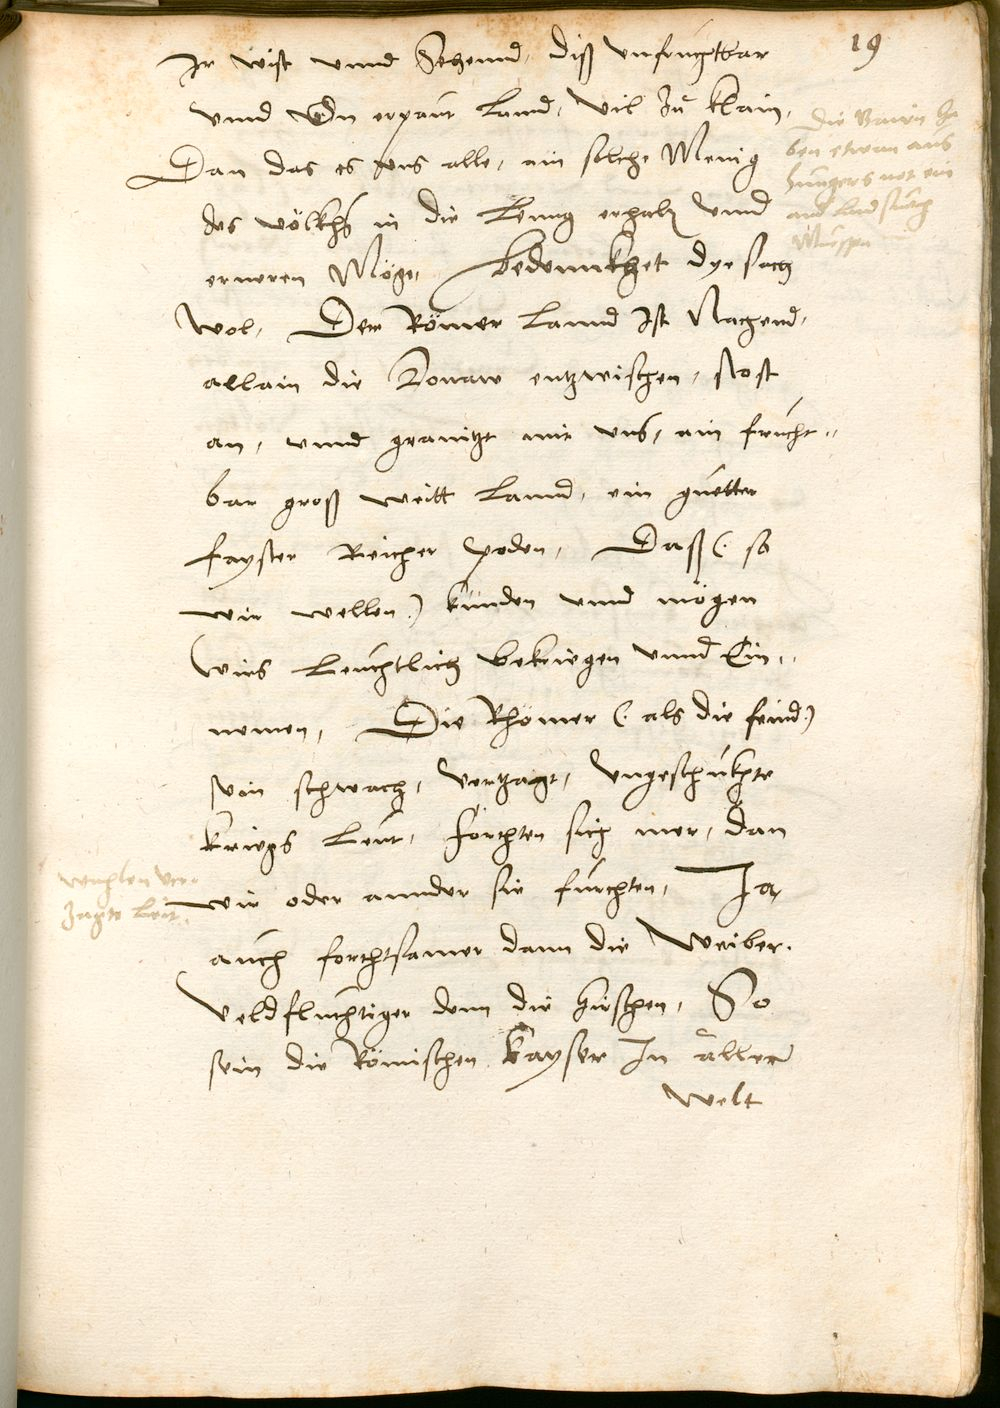 19
Ir wist unnd Sehennd, diß unfruchtbar
unnd Vn erpaut Lannd, vil zu klain,
Dan das es uns alle, ain solche Menig
des völkhs in die Leng erhalt unnd
erneren Möge, bedennkhet dye sach
wol, Der Römer Lannd Ist Nachend,
allain die Donaw entzwischen, stost
an, unnd granitzt mit uns, ain frucht„
bar groß weitt Lannd, ein guetter
fayster Reicher poden, Daß (: so
wir wellen :) künden unnd mögen
wirs Leuchtlich bekriegen unnd Ein„
nemen, Die Rhömer (: als die feind :)
sein schwach, vertzagt, ungeschükhte
kriegs Leut, förchten sich mer, dan
wir oder annder sie fürchten, Ja,
auch forchtsamer dann die Weiber,
veldfluchtiger denn die hirschen, So
sein die Römischen kayser In aller
welt
Die Bairn ha
ben etwan aus
hungers not ein
and Land
Müessen
ver„
zagte Leit.